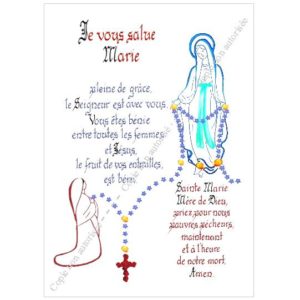 Je vous salue
Marie
pleine de grâce,
le Seigneur est avec vous.
Vous êtes bénie
entre toutes les femmes
et Jésus,
le fruit de vos entrailles,
est béni.
Sainte Marie
Mère de Dieu,
priez pour nous
pauvres pécheurs,
maintenant
et à l'heure
de notre mort.
Amen
Copie non autorisée
Copie non autorisée
Copie non autorisée